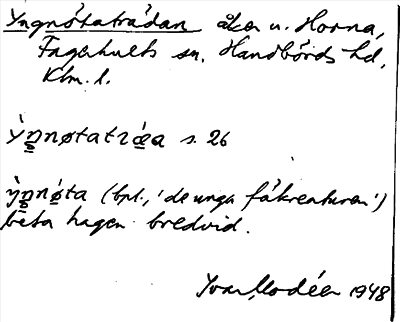 Yngnötaträdan åker u. Horna,
Fagerhults sn, Handbörds hd,
Klm. l.
Ỳŋnøtatræa s. 26
ỳŋnøta (bpl., 'de unga fåkreaturen')
beta hagen bredvid.
Ivar Modéer 1948